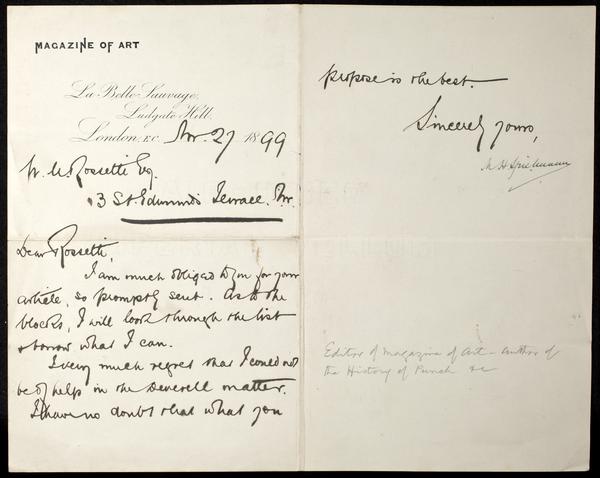 MAGAZINE OF ART
La Belle Sauvage,
Ludgate Hill,
London, E.C. Nov. 27 1899
W. M. Rossetti Esq.
3 St. Edmund's Terrace. N.W.
Dear Rossetti,
I am much obliged to you for your
article, so promptly sent. As to the
blocks, I will look through the list
& borrow what I can.
I very much regret that I could not
be of help in the Deverell matter.
I have no doubt that what you
propose is the best.
Sincerely yours,
M H Spielmann
Editor of Magazine of Art - author of
the History of Punch &c